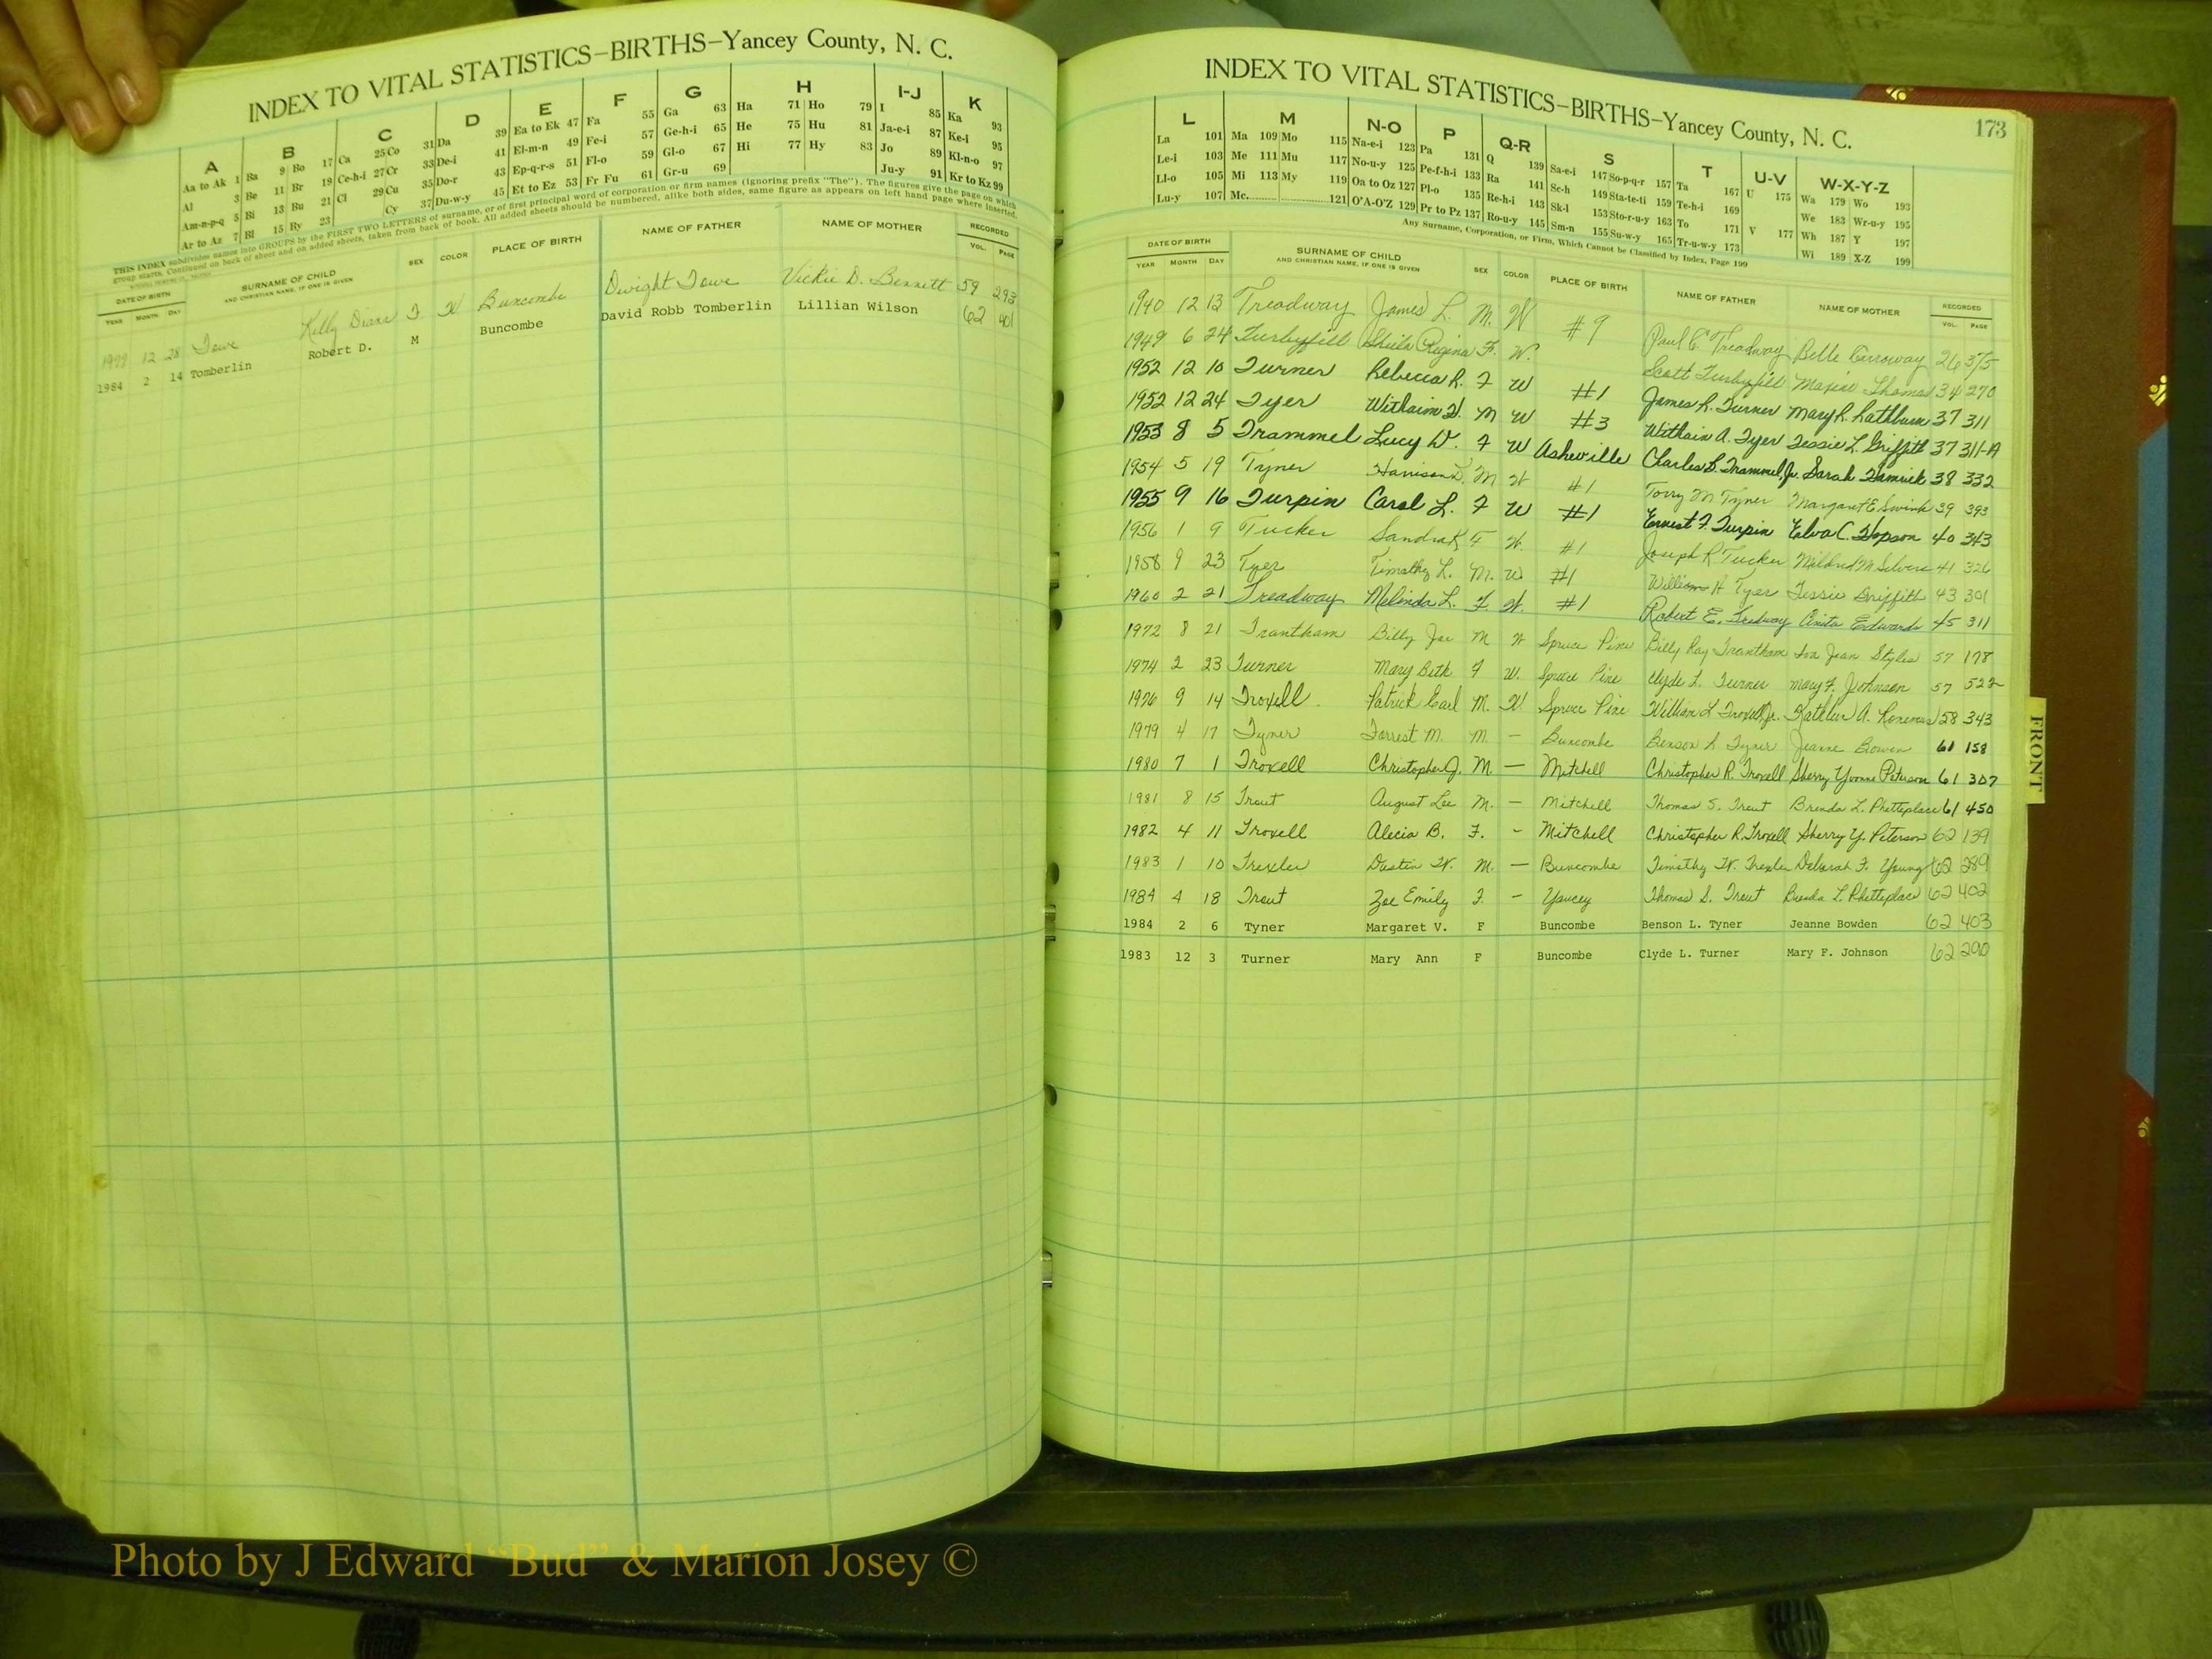 INDEX TO VITAL STATISTICS–BIRTHS–Yancey County, N. C.
A B C D E F G H I-J K
Aa to Ak 1 Ba 9 Bo 17 Ca 25 Co 31 Da 39 Ea to Ek 47 Fa 55 Ga 63 Ha 71 Ho 79 I 85 Ka 93
Al 3 Be 11 Br 19 Ce-h-i 27 Cr 33 De-i 41 El-m-n 49 Fe-i 57 Ge-h-i 65 He 75 Hu 81 Ja-e-i 87 Ke-i 95
Am-n-p-q 5 Bi 13 Bu 21 Cl 29 Cu 35 Do-r 43 Ep-q-r-s 51 Fl-o 59 Gl-o 67 Hi 77 Hy 83 Jo 89 Kl-n-o 97
Ar to Az 7 Bl 15 By 23 Cy 37 Du-w-y 45 Et to Ez 53 Fr Fu 61 Gr-u 69 Ju-y 91 Kr to Kz 99
THIS INDEX subdivides names into GROUPS by the FIRST TWO LETTERS of surname, or of first principal word of corporation or firm names (ignoring prefix "The"). The figures give the page on which
group starts. Continued on back of sheet and on added sheets, taken from back of book. All added sheets should be numbered, alike both sides, same figure as appears on left hand page where inserted.
DATE OF BIRTH SURNAME OF CHILD SEX COLOR PLACE OF BIRTH NAME OF FATHER NAME OF MOTHER RECORDED
YEAR MONTH DAY AND CHRISTIAN NAME, IF ONE IS GIVEN VOL. PAGE
12 28 Towe Kelly Diane F W Buncombe Dwight Towe Vickie D. Bennett 59 293
1984 2 14 Tomberlin Robert D. M Buncombe David Robb Tomberlin Lillian Wilson 62 401
INDEX TO VITAL STATISTICS–BIRTHS–Yancey County, N. C. 173
L M N-O P Q-R S T U-V W-X-Y-Z
La 101 Ma 109 Mo 115 Na-e-i 123 Pa 131 Q 139 Sa-e-i 147 So-p-q-r 157 Ta 167 U 175 Wa 179 Wo 193
Le-i 103 Me 111 Mu 117 No-u-y 125 Pe-f-h-i 133 Ra 141 Sc-h 149 Sta-te-ti 159 Te-h-i 169 We 183 Wr-u-y 195
Ll-o 105 Mi 113 My 119 Oa to Oz 127 Pl-o 135 Re-h-i 143 Sk-l 153 Sto-r-u-y 163 To 171 V 177 Wh 187 Y 197
Lu-y 107 Mc 121 O'A-O'Z 129 Pr to Pz 137 Ro-u-y 145 Sm-n 155 Su-w-y 165 Tr-u-w-y 173 Wi 189 X-Z 199
Any Surname, Corporation, or Firm, Which Cannot be Classified by Index, Page 199
DATE OF BIRTH SURNAME OF CHILD SEX COLOR PLACE OF BIRTH NAME OF FATHER NAME OF MOTHER RECORDED
YEAR MONTH DAY AND CHRISTIAN NAME, IF ONE IS GIVEN VOL. PAGE
1940 12 13 Treadway James L. M. W #9 Paul C. Treadway Belle Carroway 26 375
1949 6 24 Turbyfill Sheila Regina F. W. Scott Turbyfill Maxine Thomas 34 270
1952 12 10 Turner Rebecca R. F W #1 James R. Turner Mary R. Rathburn 37 311
1952 12 24 Tyer M W #3 A. Tyer Jessie L. Griffith 37 311-A
1953 8 5 Trammel Lucy W. F W Asheville Charles B. Trammel, Jr. Sarah Hamrick 38 332
1954 5 19 Tyner Harrison M W #1 Torry M Tyner Margaret E Swink 39 393
1955 9 16 Turpin Carol L. F W #1 Ernest F. Turpin Elva C. Hopson 40 343
1956 1 9 Tucker Sandra K F W. #1 Joseph R Tucker Mildred M Silvers 41 326
1958 9 23 Tyer Timothy L. M. W #1 William H Tyer Jessie Griffith 43 301
1960 2 21 Treadway Melinda L. F. W. #1 Robert E. Tredway Anita Edwards 45 311
1972 8 21 Trantham Billy Joe M W Spruce Pine Billy Ray Trantham Iva Jean Styles 57 178
1974 2 23 Turner Mary Beth F W. Spruce Pine Clyde L. Turner Mary F. Johnson 57 522
1976 9 14 Troxell Patrick Earl M. W Spruce Pine William L Troxell Jr. Kathleen A. 58 343
1979 4 17 Tyner Forrest M. M. – Buncombe Benson L Tyner Jeanne Bowen 61 158
1980 7 1 Troxell Christopher J. M. – Mitchell Christopher R. Troxell Sherry Yvonne Peterson 61 307
1981 8 15 Trout August Lee M. – Mitchell Thomas S. Trout Brenda L. Phetteplace 61 450
1982 4 11 Troxell Alecia B. F. – Mitchell Christopher R. Troxell Sherry Y. Peterson 62 139
1983 1 10 Trexler Dustin W. M. – Buncombe Timothy W. Trexler Deborah F. Young 62 289
1984 4 18 Trout Zoe Emily F. – Yancey Thomas S. Trout Brenda L Phetteplace 62 402
1984 2 6 Tyner Margaret V. F Buncombe Benson L. Tyner Jeanne Bowden 62 403
1983 12 3 Turner Mary Ann F Buncombe Clyde L. Turner Mary F. Johnson 62 290
FRONT
Photo by J Edward “Bud” & Marion Josey ©